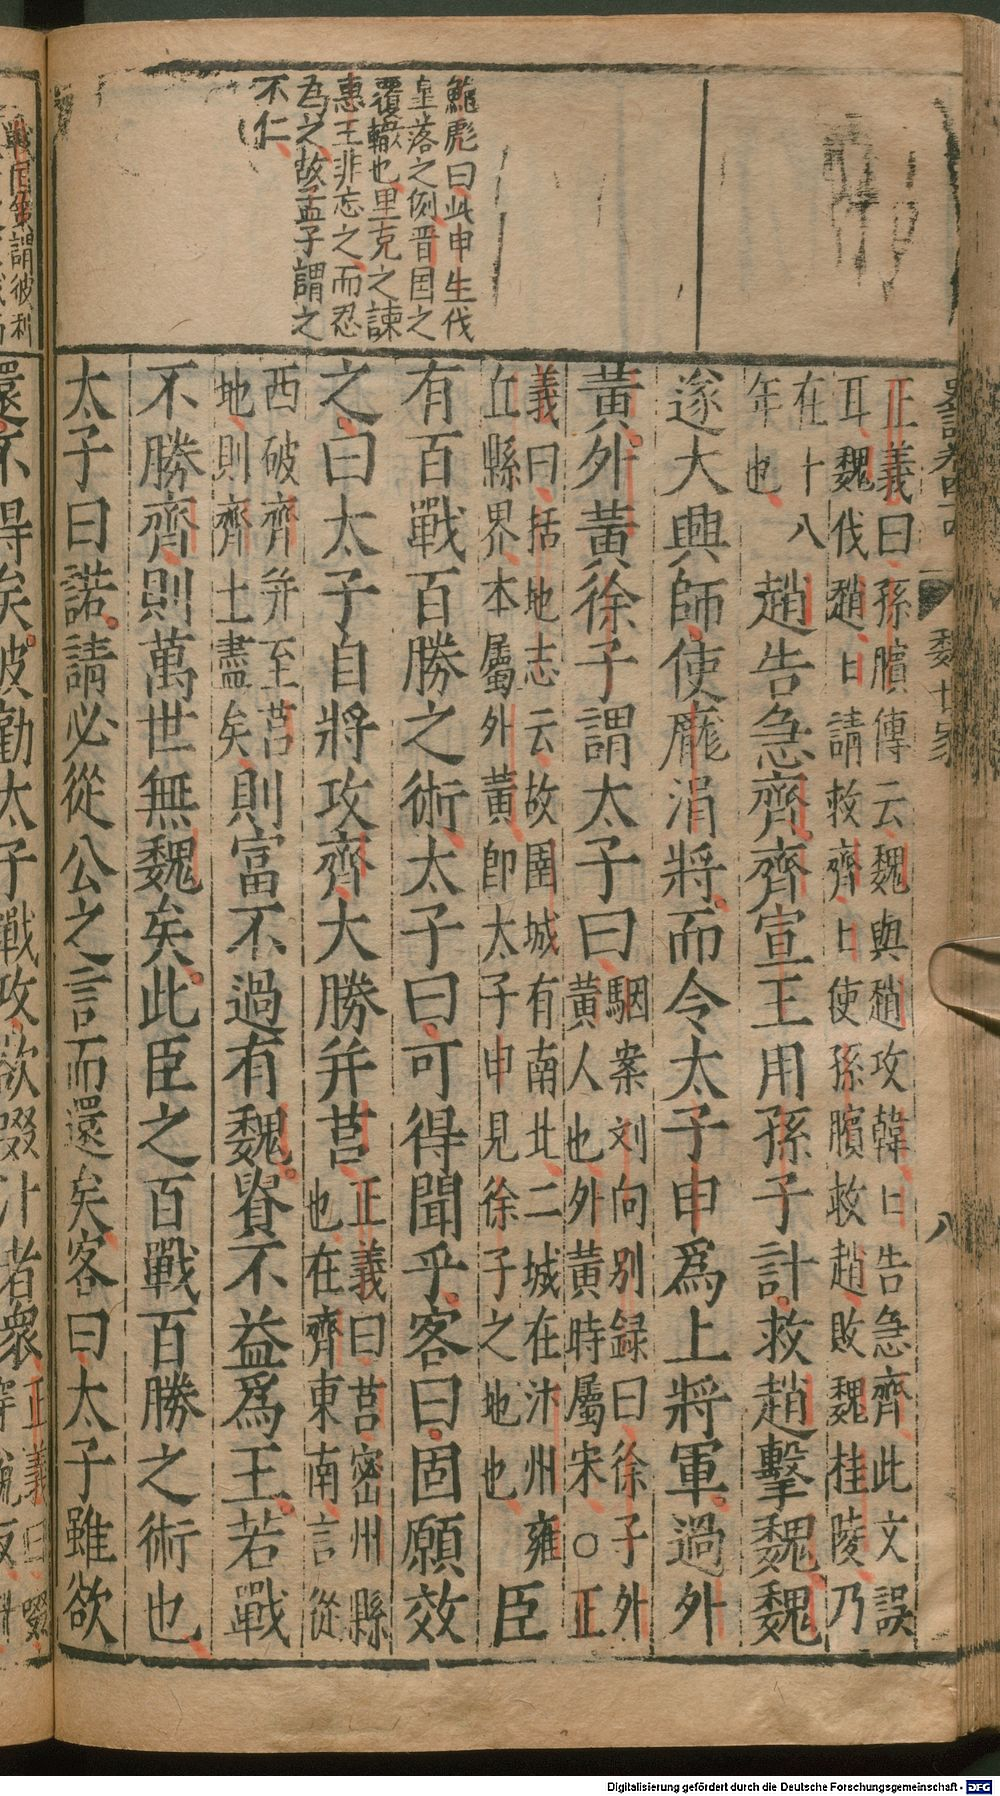 鮑彪曰此申生伐
皐落之例晋国之
覆轍也里克之諫
惠王非忘之而忍
爲之故孟子謂之
不仁
魏世家
八
正義曰孫臏傳云魏與趙攻韓日告急齊此文誤
耳魏伐趙日請救齊日使孫臏救趙敗魏桂陵乃
在十八
年也
趙告急齊齊宣王用孫子計救趙擊魏魏
遂大興師使龐涓將而令太子申爲上將軍過外
黃外黃徐子謂太子曰
駰案刘向别録曰徐子外
黃人也外黃時屬宋○正
義曰括地志云故圉城有南北二城在汴州雍
丘縣界本屬外黃卽太子申見徐子之地也
臣
有百戰百勝之術太子曰可得聞乎客曰固願效
之曰太子自將攻齊大勝并莒
正義曰莒密州縣
也在齊東南言從
西破齊并至莒
地則齊土盡矣
則富不過有魏貴不益爲王若戰
不勝齊則萬世無魏矣此臣之百戰百勝之術也
太子曰諾請必從公之言而還矣客曰太子雖欲
還不得矣彼勸太子戰攻欲啜汁者衆
Digitalisierung gefördert durch die Deutsche Forschungsgemeinschaft - DFG